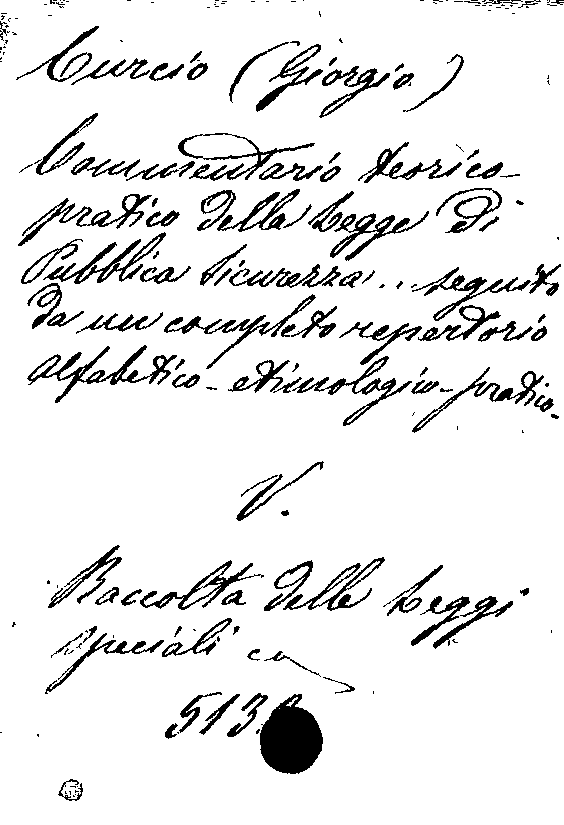 Curcio (Giorgio)
Commentario teorico-
pratico della Legge di
Pubblica Sicurezza... seguito
da un completo repertorio
alfabetico-etimologico-pratico.
V.
Raccolta delle Leggi
speciali
513